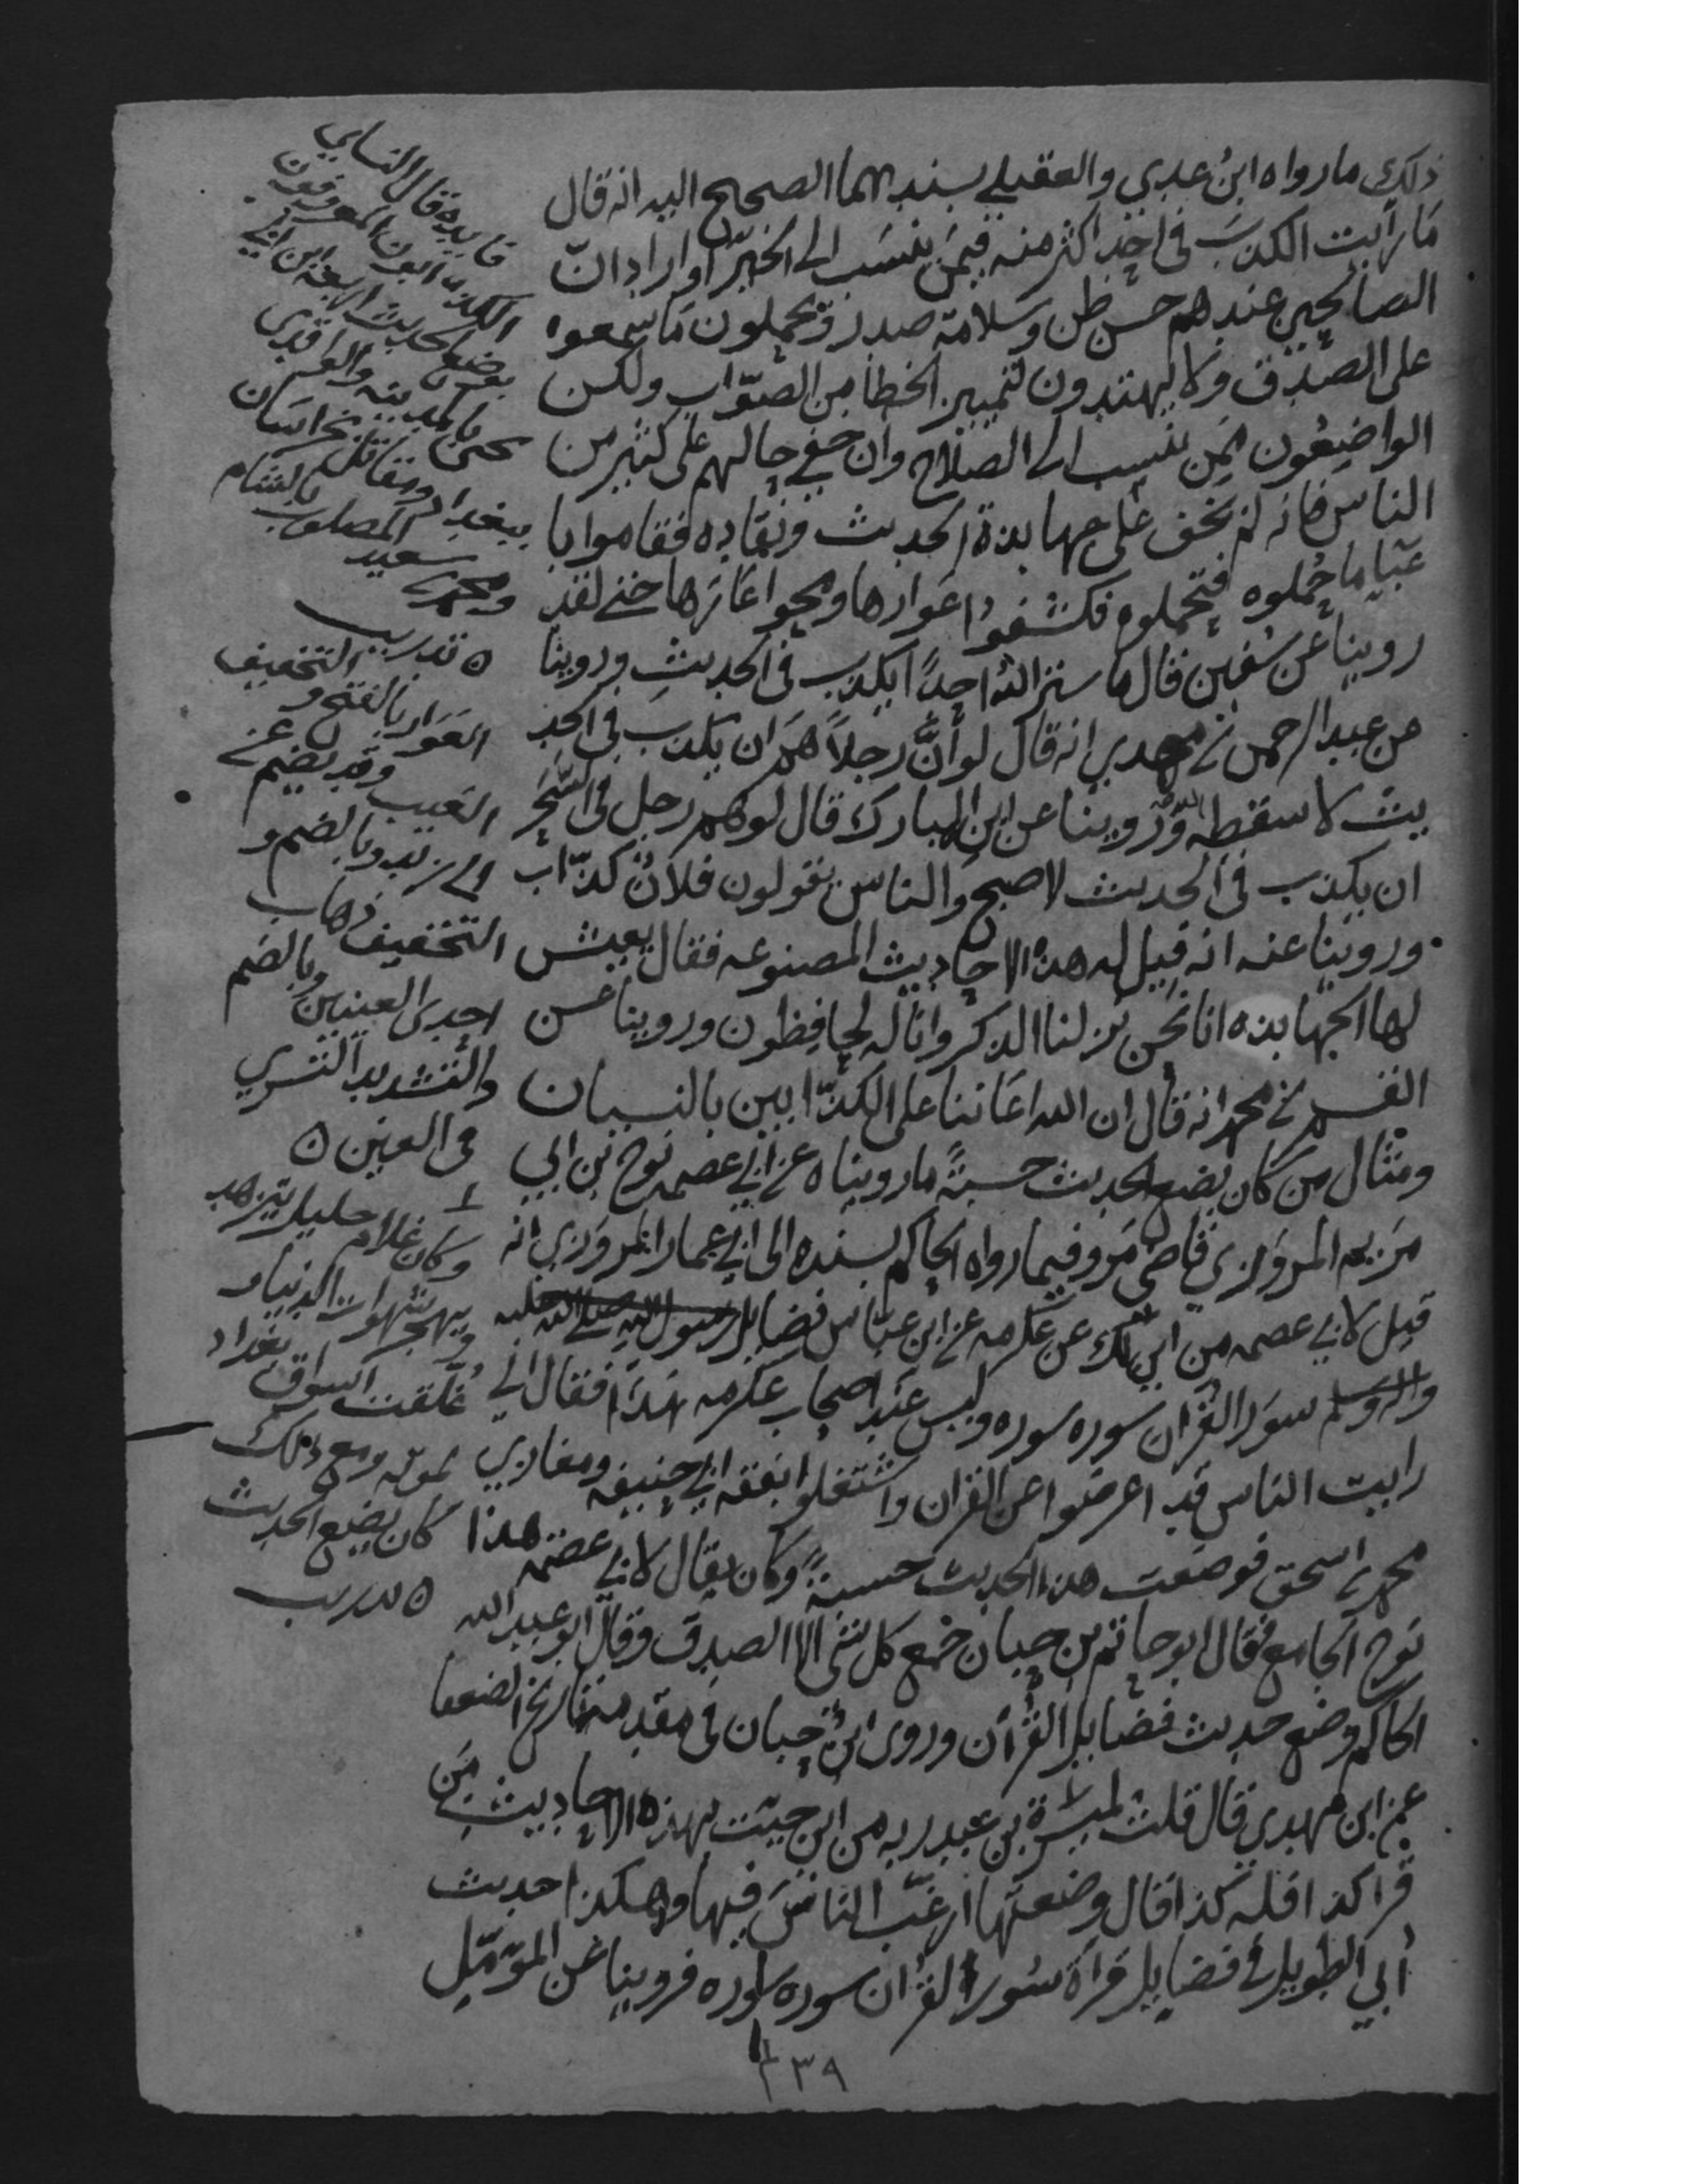 ذلك ما رواه ابنُ عدي والعقيلي بسندهما الصحيح اليه انه قال
مَا رأيت الكذبَ فى احدٍ اكثر منه فيمَن ينسَب الى الخير اوارادانّ
الصالحين عندهم حسن ظن وسلامة صدر فيحملون مَا سمعوه
على الصّدق ولا يهتدون لتمييز الخطا من الصّواب ولكن
الواضِعُون ممن ينسب الى الصلاح وان خفي حالهم على كثير من
الناس فانه لم يخف على جهابذة الحديث ونقاده فقاموا با
عبَا ما حُملوه فتحملوه فكشفوا عَوارها ومحوا عَارَها حتى لقد
روينا عن سُفين قال ما ستر اللهُ احدًا يكذب فى الحديثِ وروينا
عن عبد الرحمن بن مهدي انه قال لو أنَّ رجلاً همَ ان يكذبَ فى الحد
يث لاسقطه اللّه وروينا عن ابن المبارك قال لو هم رجل فى السَّحَر
ان يكذب فى الحديث لاصبح والناس يقولون فلانٌ كذّاب
وروينا عنه انه قيل له هذه الاحاديث المصنوعه فقال يعيش
لها الجهابذه انا نحن نزلنا الذكر وانا له لحافظون وروينا عن
القسم بن محمد انه قال ان الله اعَاننا على الكذّابين بالنسيان
ومثال من كان يضع الحديث حسبةً ما رويناه عن أبي عصمه نوح بن ابي
مَريم المروَزي قاضى مَرو فيما رواه الحاكم بسنده الى ابي عمار المروَزي انه
قيل لابي عصمه من اين لك عن عكرمه عن ابن عبّاس فضايل رسول الله صلى الله عليه
واله وسلم سوَر القرُان سوره سوره وليس عند اصحاب عكرمه هَذا فقال اني
رايت الناس قد اعرضوا عن القران واشتغلوا بفقه ابي حنيفه ومغازي
محمد بن اسحق فوضعت هذا الحديث حسبةً وكان يقال لابي عصمه هذا
نوح الجامع فقال ابو حاتم بن حبان جمع كل شى الا الصدق وقال ابو عبد الله
الحاكم وضع حديث فضايل القُرآن وروى ابنُ حبان فى مقدمة تاريخ الضعفا
عن ابن مهدي قال قلت لميسَرة بن عبد ربه من اين جيت بهذه الاحاديث مَن
قرا كذا فله كذا قال وضعتها ارغّب الناسَ فيها وهكذا حديث
أُبي الطويل فى فضايل قرَاة سُور القرآن سوره سوره فروينا عن المؤمّل
فايده قال النسايي
الكذّابون المعروفون
بوضع الحديث اربعه ابن ابي
يحيى بالمدينه والواقدي
ببغداد ومقاتل بخراسَان
ومحمد بن سعيد المصلوب بالشام
ه تدريب
العَوَار بالفتح و التخفيف
العَيب وقد يضم عن
ابي زيد وبالضم و
التخفيف ذهاب
احدى العينين وبالضم
والتشديد الذي
فى العين ه
وكان غلام خليل يتزهد
ويهجر شهوات الدنيا و
غلّقت اسواق بغداد
لموته ومع ذلك
كان يضع الحديث
ه تدريب
٣٩